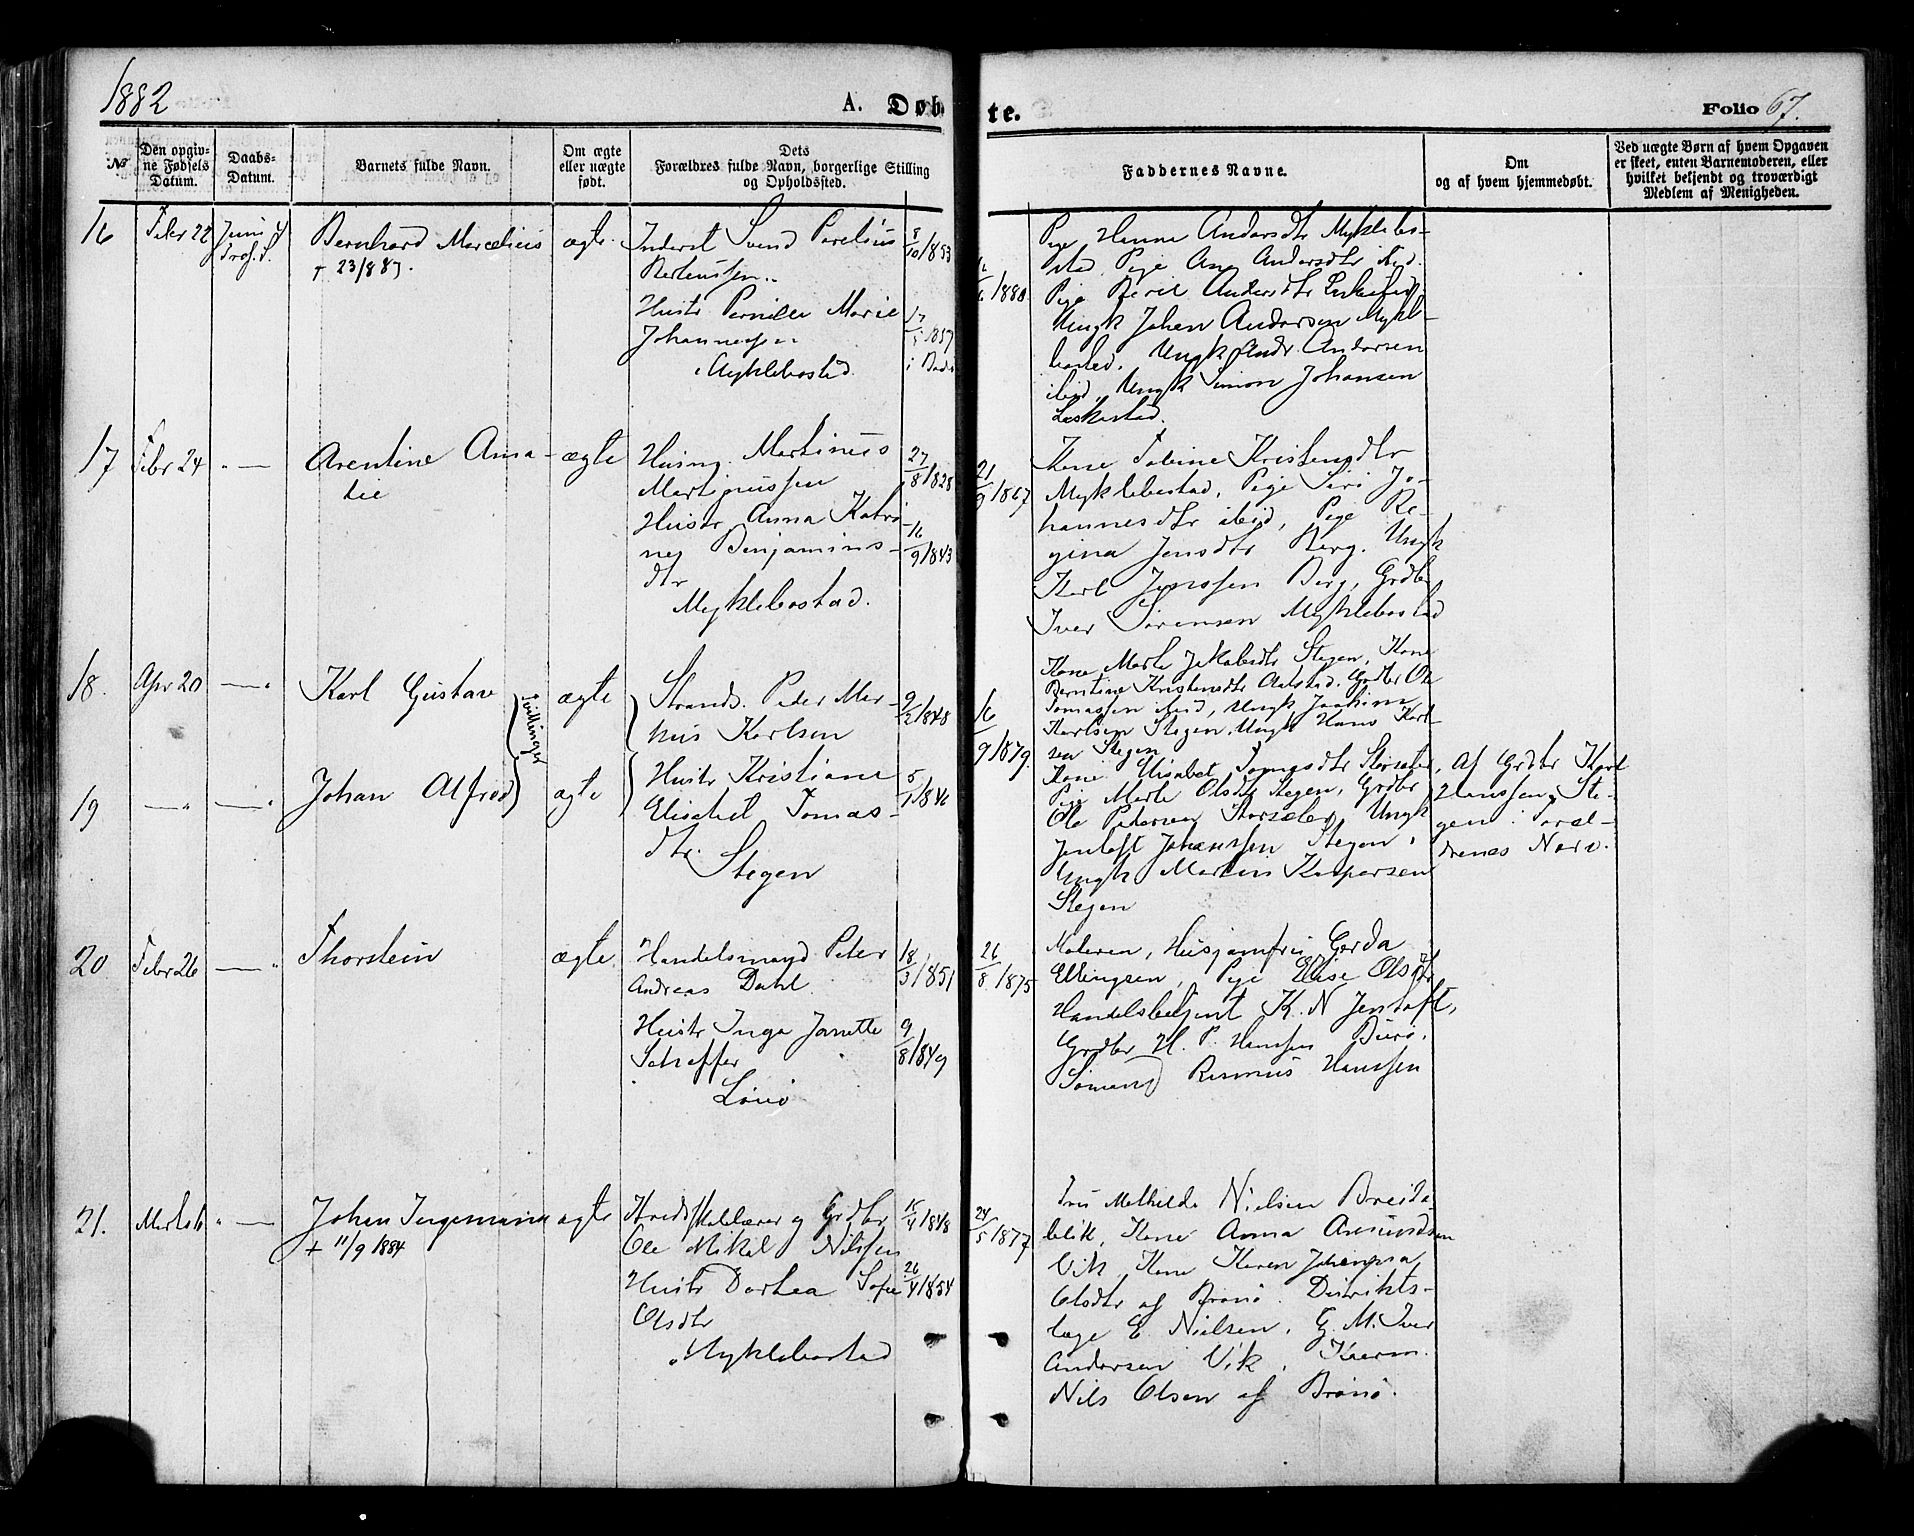 1882
A. Døb
te.
Folio 67.
№
Den opgiv-
ne Fødsels
Datum.
Daabs-
Datum.
Barnets fulde Navn.
Om ægte
eller uægte
født.
Dets
Forældres fulde Navn, borgerlige Stilling
og Opholdssted.
Faddernes Navne.
Om
og af hvem hjemmedøbt.
Ved uægte Børn af hvem Opgaven
er skeet, enten Barnemoderen, eller
hvilket bekjendt og troværdigt
Medlem af Menigheden.
16
Febr 22
Juni 4
Bernhard Marcelius
+ 23/8 83.
ægte
Inderst Svend Parelius
Bertenssen
Hustr Pernille Marie
Johannessen
Myklebostad
8/10 1853
17/5 1857
i Bodø
Pige Hanna Andersdtr Myklebo-
stad, Pige Ane Andersdtr ibid.
Pige Berit Andersdtr
Ungk Johan Andersen Mykl-
bostad, Ungk Andr. Andersen
ibid, Ungk Simon Johansen
Laskestad.
17
Febr 24
Arentine Ama-
lie
ægte
Husm. Martinus
Martinussen
Hustr Anna Katri-
ne Benjamins-
dtr
Myklebostad.
27/8 1828
16/9 1843
21/9 1867
Kone Tobine Kristensdtr
Myklebostad, Pige Siri Jo-
hannesdtr ibid, Pige Re-
gina Jensdtr Berg. Ungk
Karl Jenssen Berg, Grdbr
Iver Sørensen Myklebostad
18.
Apr 20
Karl Gustav
Tvillinger
ægte
Strands. Peder Mar-
kus Karlsen
9/2 1848
16/9 1879
Kone Marta Jakobsdtr Stegen, Kone
Berntine Kristensdtr Aalstad. Grdbr Ole
Tomassen ibid, Ungk Joakim
Karlsen Stegen. Ungk Hans Karl-
sen Stegen
19
Johan Alfred
ægte
Hustr Kristiane
Elisabet Tomas-
dtr.
Stegen
Kone Elisabet Tomasdtr Storsæter,
Pige Marta Olsdtr Stegen, Grdbr
Ole Pedersen Storsæter, Ungk
Jentoft Johanssen Stegen,
Ungk Martin Kaspersen
Stegen
Af Grdbr Karl
Hanssen Ste-
gen i Foræl-
drenes Nærv.
20
Febr 26
Thorstein
ægte
Handelsmand Peter
Andreas Dahl.
Hustr Inga Janette
Scheffer
Løvø
18/3 1851
9/8 1849
26/8 1875
Moderen, Husjomfru Gerda
Ellingsen, Pige Elise Olsdtr
Handelsbetjent K. N Jentoft,
Grdbr H. P. Hanssen Burø,
Sømand Rasmus Hanssen
21.
Marts
Johan Ingemann
+ 11/9 1884
ægte
Kredsskolelærer og Grdbr
Ole Mikal Nilssen
Hustr Dorthea Sofie
Olsdtr
Myklebostad
15/4 1848
26/4 1854
24/5 1877
Fru Mathilde Nielsen Breida-
blik, Kone Anna Amundsen
Vik, Kone Karen Johanna
Olsdtr af Brønø. Distrikts-
læge E. Nielsen, G. M. Iver
Andersen Vik,
Nils Olsen af Brønø.